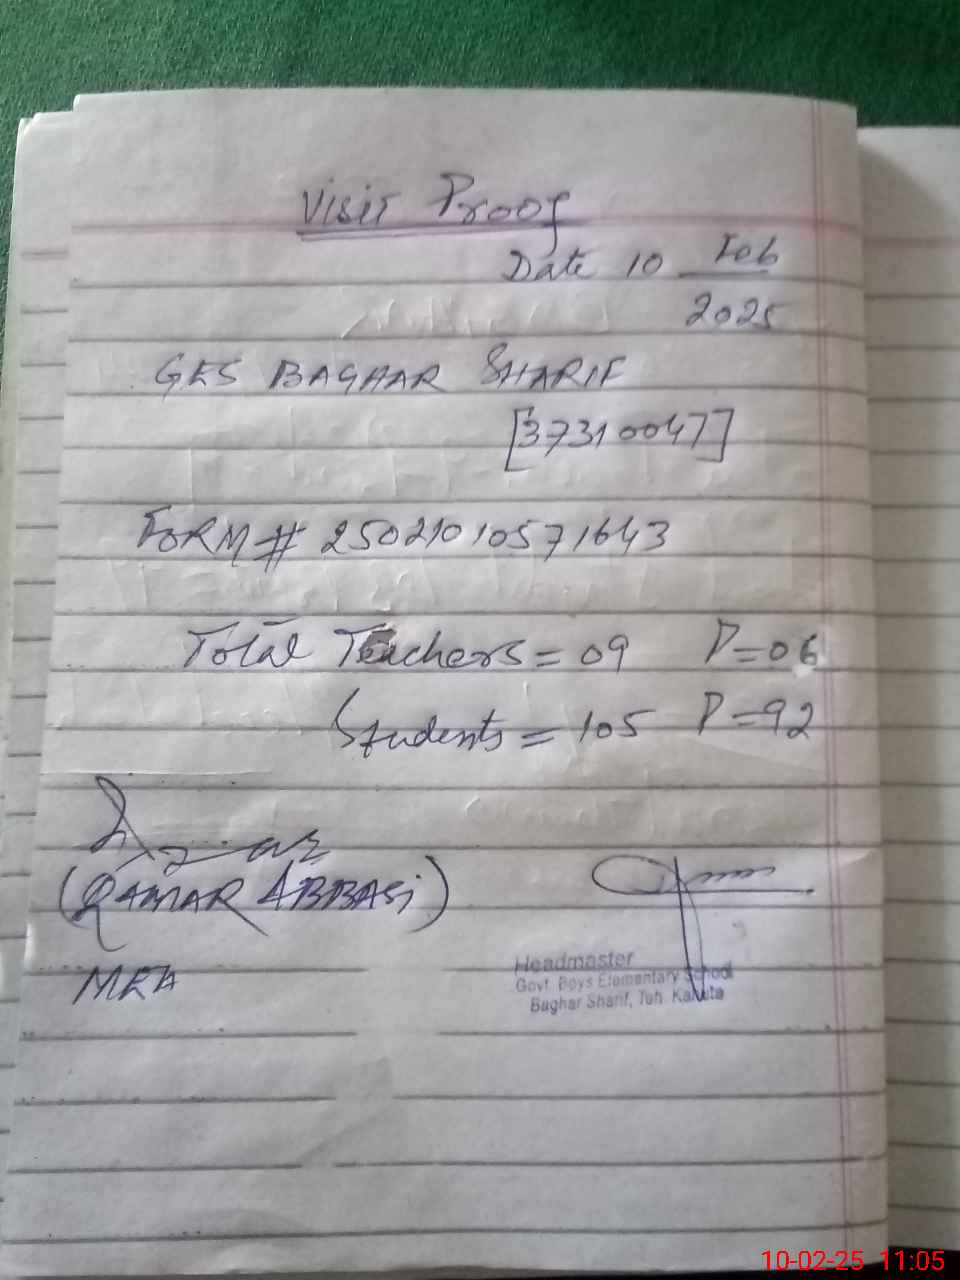 Visit Proof
Date 10 Feb
2025
GES BAGHAR SHARIF
[37310047]
FORM# 25021010571643
Total Teachers = 09 P=06
Students = 105 P=92
(QAMAR ABBASi)
MEA
Headmaster
Govt. Boys Elementary School
Baghar Sharif, Teh. Kahuta
10-02-25 11:05